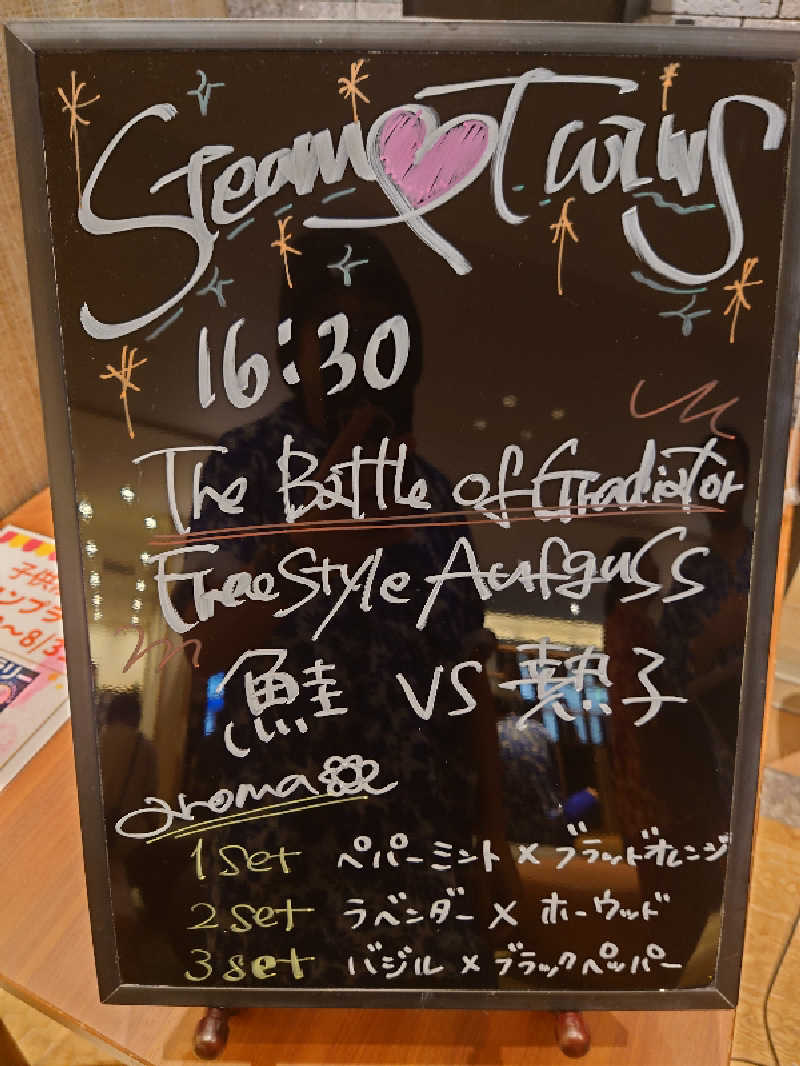 Steam Twins
16:30
The Battle of Gradiator
FreeStyle Aufguss
鮭 VS 熱子
aroma
1set ペパーミント×ブラッドオレンジ
2set ラベンダー×ホーウッド
3set バジル×ブラックペッパー
子供
ンプラ
~8/3